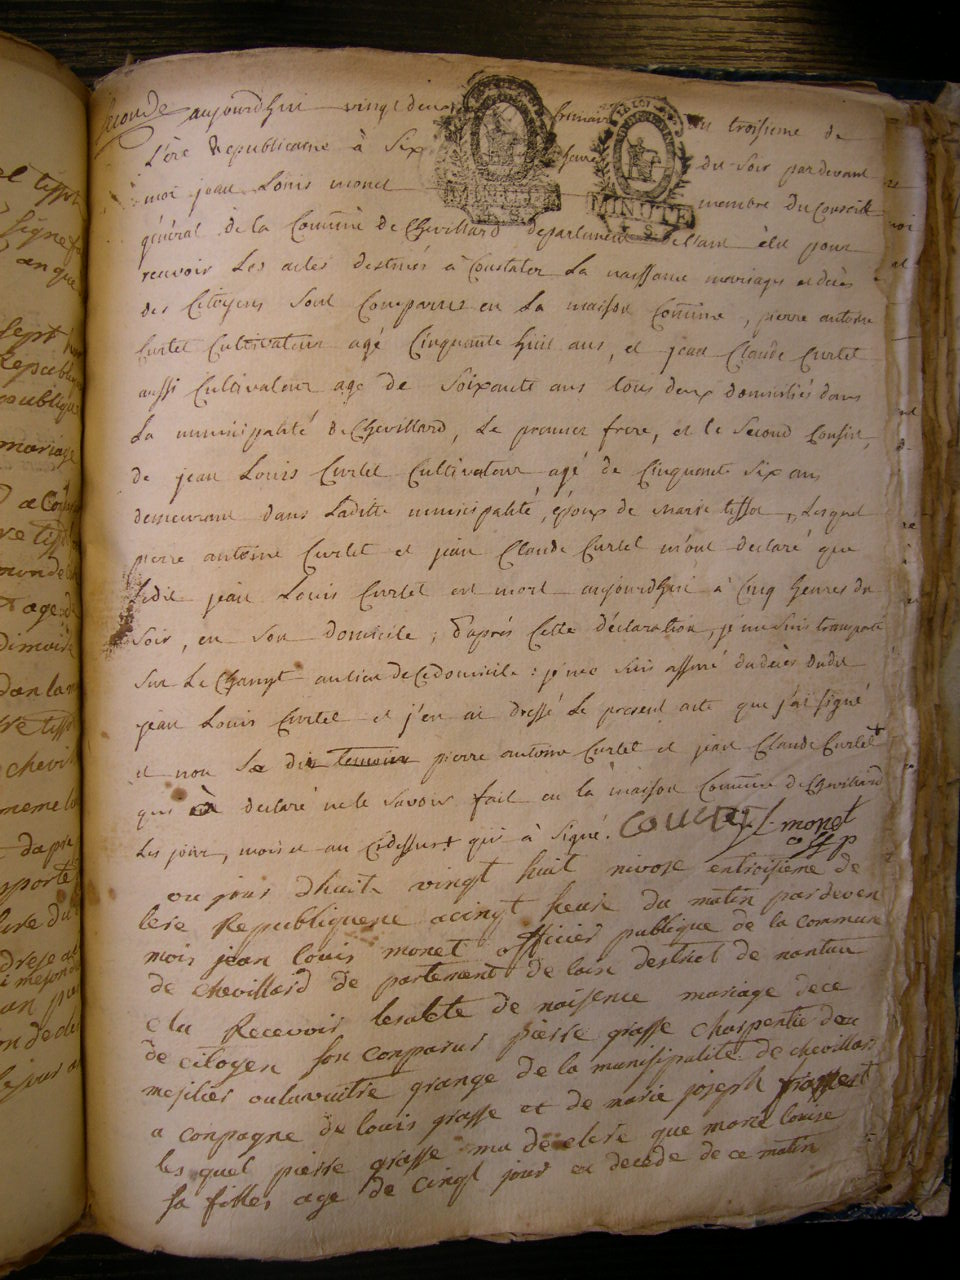 seconde aujourdhui vingt deux frimaire an troisieme de
L'ere Republicaine à Six heure du Soir pardevant
moi jean Louis monet membre Du Conseil
général de la Commune de Chevillard departement de l'ain élu pour
recevoir Les actes destinés à Constater La naissance mariages et décès
des Citoyens Sont Comparus en La maison Commune, pierre antoine
Curtet Cultivateur agé Cinquante huit ans, et jean Claude Curtet
aussi Cultivateur age de Soixante ans tous deux domiciliés dans
La municipalité de Chevillard, Le premier frere, et le Second Cousin,
de jean Louis Curtet Cultivateur agé de Cinquante Six ans
demeurant dans Laditte municipalité, époux de Marie tissot, Lesquel
pierre antoine Curtet et jean Claude Curtet m'ont declaré que
Ledit jean Louis Curtet est mort aujourdhui à Cinq heures du
Soir, en Son domicile; d'après Cette déclaration, je me Suis transporté
Sur Le Champt au lieu de Ce domicile: je me Suis assuré du décès dudit
jean Louis Curtet et j'en ai dressé Le present acte que j'ai signé
et non pierre antoine Curtet et jean Claude Curtet +
qui à declaré ne le Savoir fait en la maison Commune de Chevillard
Les jour, mois et an Cidessus + qui à Signé. COURTET J L monet
off p
ou jour dhuit vingt huit nivose entroisieme de
lere Republiquene acingt heure du matin pardeven
mois jean louis monet officier publique de la commune
de chevillard de partement de lain destriet de nantua
elu Recevoir lesalete de naisence mariage dece
de citoyen son conparus pierre grasse charpentie deu
mejilier oulavuitre grange de la munisipalite de chevillar
a conpagne de louis grasse et de marie joseph
les quel pierre grasse ma declere que marie louise
sa filles age de cingt jour et decede de ce matin
MINUTE
MINUTE